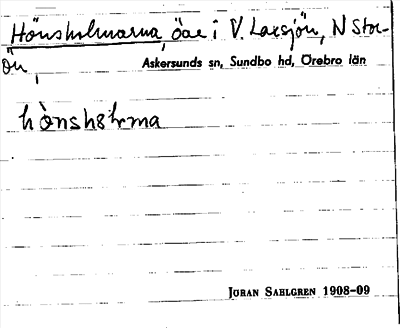 Hönsholmarna, öar i V. Laxsjön, N Stor-
ön,
Askersunds sn, Sundbo hd, Örebro län
hönshòḷma
JÖRAN SAHLGREN 1908-09